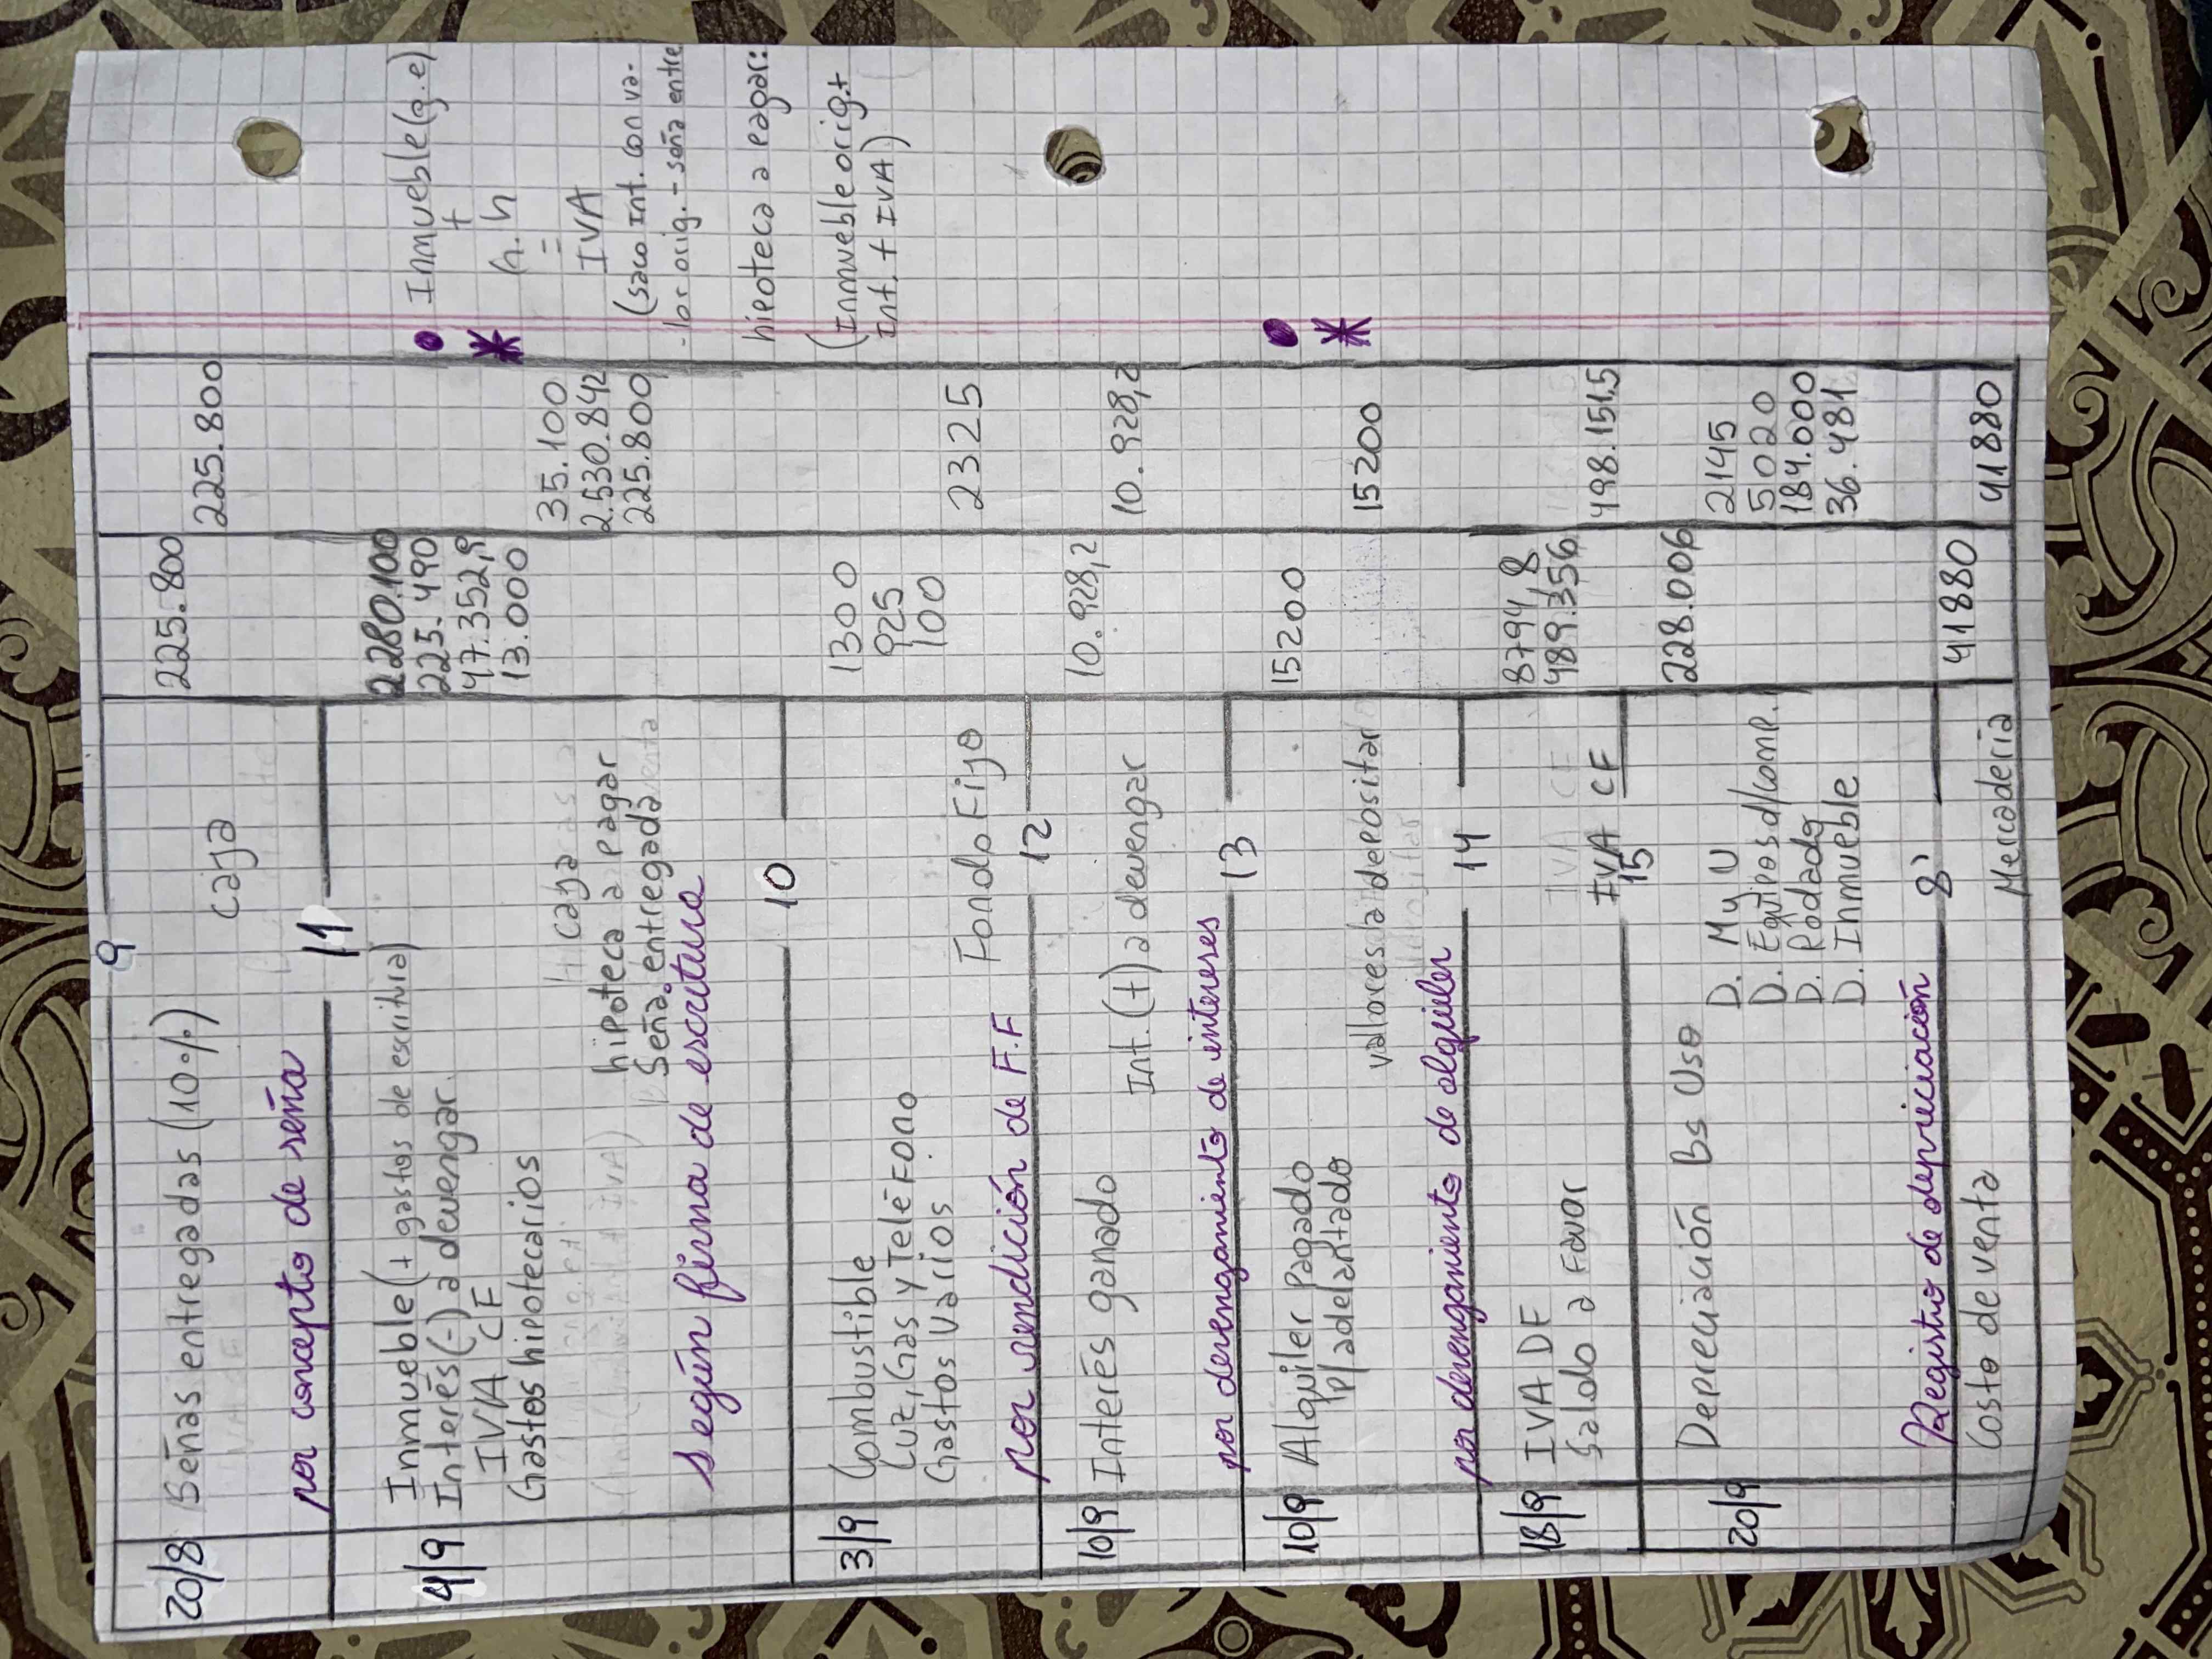 9
20/8 Señas entregadas (10%) 225.800
Caja 225.800
por concepto de seña
11
4/9 Inmueble (+ gastos de escritura) 2280.100
Interés (-) a devengar. 225.490
IVA CF 47.352,9
Gastos hipotecarios 13.000
Caja 35.100
hipoteca a pagar 2.530.842
Seña entregada 225.800
según firma de escritura
10
3/9 Combustible 1300
Luz, Gas y Teléfono 925
Gastos Varios 100
Fondo Fijo 2325
por rendición de F.F
12
10/9 Interés ganado 10.928,2
Int. (+) a devengar 10.928,2
por devengamiento de intereses
13
10/9 Alquiler Pagado 15200
p/adelantado
valores a depositar 15200
por devengamiento de alquiler
14
18/9 IVA DF 8794,8
Saldo a Favor 489.356
IVA CF 498.151,5
15
20/9 Depreciación Bs Uso 228.006
D. M y U 2145
D. Equipos d/comp. 5020
D. Rodado 184.000
D. Inmueble 36.481
Registro de depreciación
8'
Costo de venta 41880
Mercadería 41880
• Inmueble (g.e)
+
* G.h
=
IVA
(saco int. con va-
lor orig. - seña entre
hipoteca a pagar:
(Inmueble orig. +
Int. + IVA)
•
*